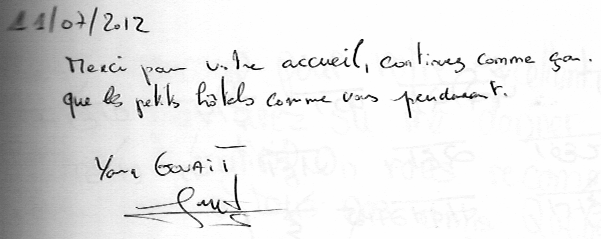 11/07/2012
Merci pour votre accueil, continuez comme ça.
que les petits hôtels comme vous perdurent.
Yann